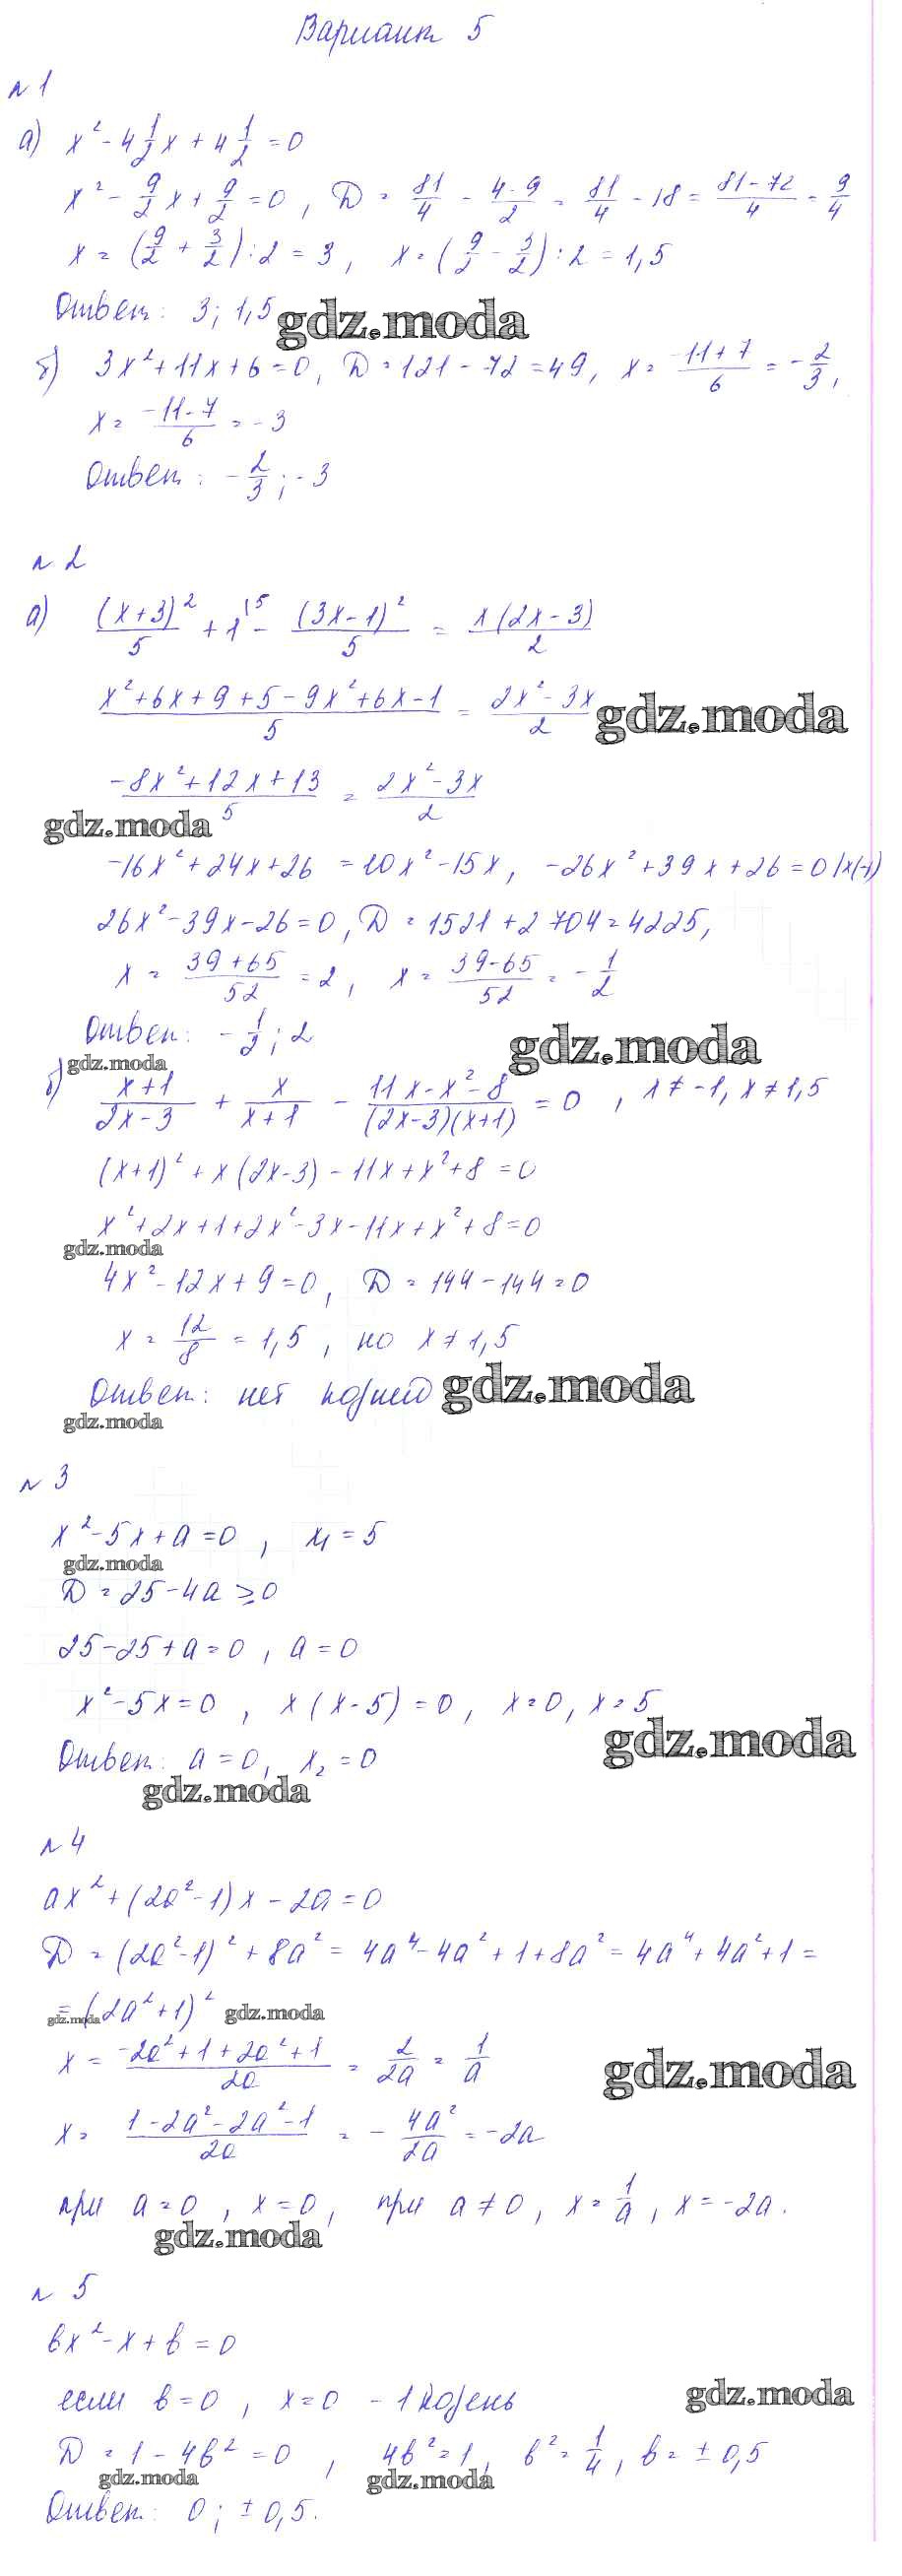 Вариант 5
№1
а) x² - 4 1/2 x + 4 1/2 = 0
x² - 9/2 x + 9/2 = 0, D = 81/4 - 4·9/2 = 81/4 - 18 = 81-72/4 = 9/4
x = (9/2 + 3/2) : 2 = 3, x = (9/2 - 3/2) : 2 = 1,5
Ответ: 3; 1,5
gdz.moda
б) 3x² + 11x + 6 = 0, D = 121 - 72 = 49, x = -11+7/6 = -2/3,
x = -11-7/6 = -3
Ответ: -2/3; -3
№2
а) (x+3)²/5 + 1\5 - (3x-1)²/5 = x(2x-3)/2
x²+6x+9+5-9x²+6x-1/5 = 2x²-3x/2
gdz.moda
-8x²+12x+13/5 = 2x²-3x/2
gdz.moda
-16x²+24x+26 = 10x²-15x, -26x²+39x+26=0 |x(-1)
26x²-39x-26=0, D = 1521+2704=4225,
x = 39+65/52 = 2, x = 39-65/52 = -1/2
Ответ: -1/2; 2
gdz.moda
gdz.moda
б) x+1/2x-3 + x/x+1 - 11x-x²-8/(2x-3)(x+1) = 0, x ≠ -1, x ≠ 1,5
(x+1)² + x(2x-3) - 11x+x²+8 = 0
x²+2x+1+2x²-3x-11x+x²+8=0
gdz.moda
4x²-12x+9=0, D = 144-144=0
x = 12/8 = 1,5, но x ≠ 1,5
Ответ: нет корней
gdz.moda
gdz.moda
№3
x²-5x+a=0, x₁=5
gdz.moda
D = 25-4a ≥ 0
25-25+a=0, a=0
x²-5x=0, x(x-5)=0, x=0, x=5
gdz.moda
Ответ: a=0, x₂=0
gdz.moda
№4
ax²+(2a²-1)x-2a=0
D = (2a²-1)²+8a² = 4a⁴-4a²+1+8a² = 4a⁴+4a²+1 =
= (2a²+1)²
gdz.moda
gdz.moda
x = -2a²+1+2a²+1/2a = 2/2a = 1/a
gdz.moda
x = 1-2a²-2a²-1/2a = -4a²/2a = -2a
при a=0, x=0, при a≠0, x=1/a, x=-2a.
gdz.moda
№5
bx²-x+b=0
если b=0, x=0 - 1 корень
gdz.moda
D = 1-4b²=0, 4b²=1, b²=1/4, b=±0,5
gdz.moda
gdz.moda
Ответ: 0; ±0,5.